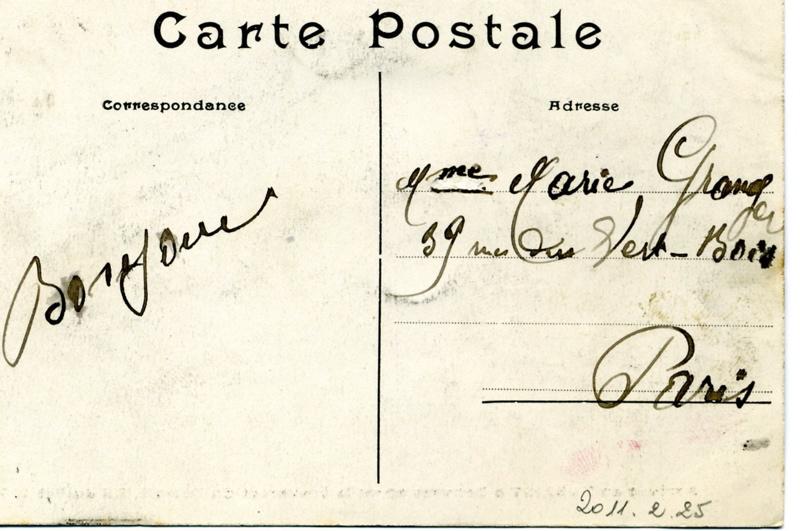 Carte Postale
Correspondance
Adresse
Bonjour
Mme Marie Granger
39 rue du Vert-Bois
Paris
2011.2.25